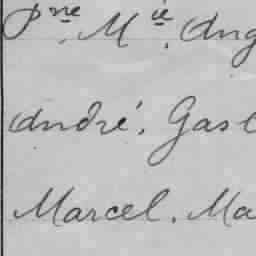 Pne Mie Ang
André, Gast
Marcel, Ma